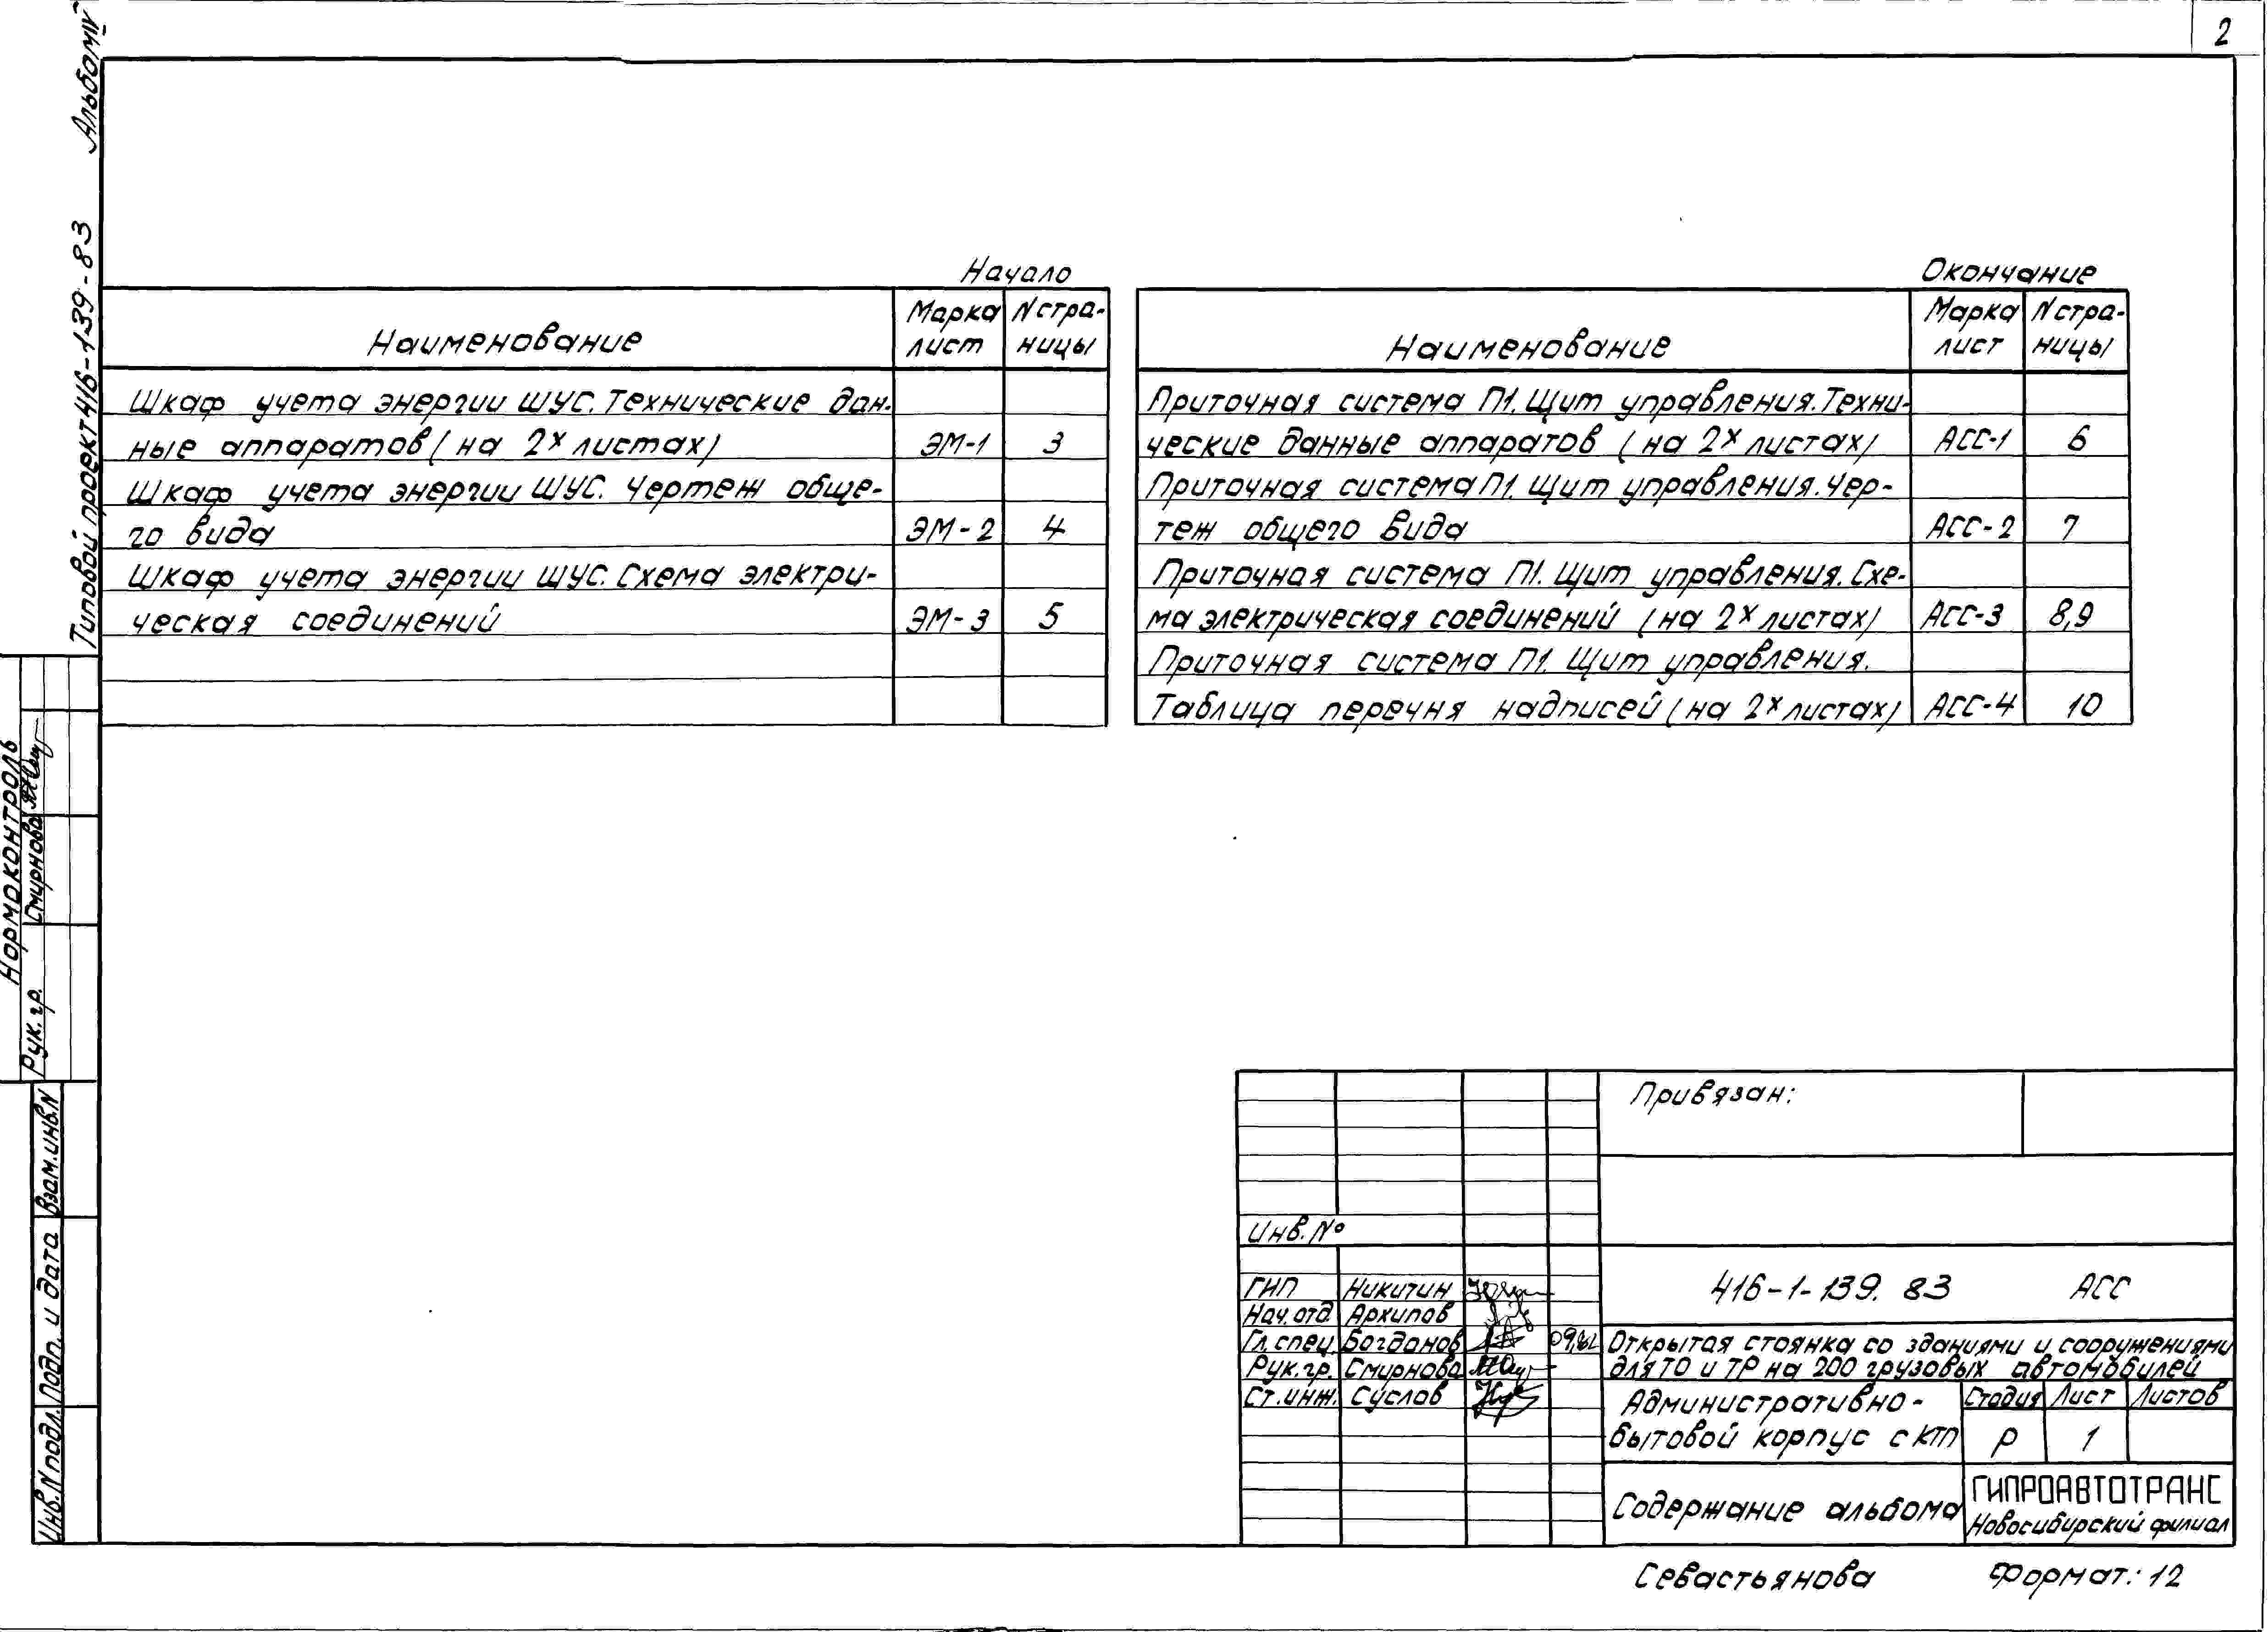 2
Альбом IV
Типовой проект 416-1-139-83
Начало
Наименование
Марка лист
N стра-
ницы
Шкаф учета энергии ШУС. Технические дан-
ные аппаратов (на 2х листах) ЭМ-1 3
Шкаф учета энергии ШУС. Чертеж обще-
го вида ЭМ-2 4
Шкаф учета энергии ШУС. Схема электри-
ческая соединений ЭМ-3 5
Окончание
Наименование
Марка лист
N стра-
ницы
Приточная система П1. Щит управления. Техни-
ческие данные аппаратов (на 2х листах) АСС-1 6
Приточная система П1. Щит управления. Чер-
теж общего вида АСС-2 7
Приточная система П1. Щит управления. Схе-
ма электрическая соединений (на 2х листах) АСС-3 8,9
Приточная система П1. Щит управления.
Таблица перечня надписей (на 2х листах) АСС-4 10
Нормоконтроль
Рук. гр. Смирнова
Взам. инв. N
Подп. и дата
Инв. N подл.
Привязан:
Инв. №
ГИП Никитин
Нач. отд. Архипов
Гл. спец. Богданов
Рук. гр. Смирнова
Ст. инж. Суслов
416-1-139.83 АСС
Открытая стоянка со зданиями и сооружениями
для ТО и ТР на 200 грузовых автомобилей
Административно-
бытовой корпус с КТП
Стадия Лист Листов
Р 1
Содержание альбома
ГИПРОАВТОТРАНС
Новосибирский филиал
Севастьянова Формат: 12